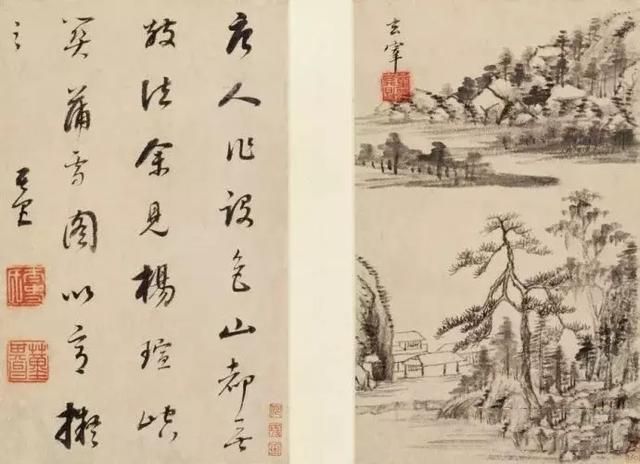 玄宰
唐人作設色山都無
皴法余見楊瑄峒
關蒲雪圖以意擬
之 其昌